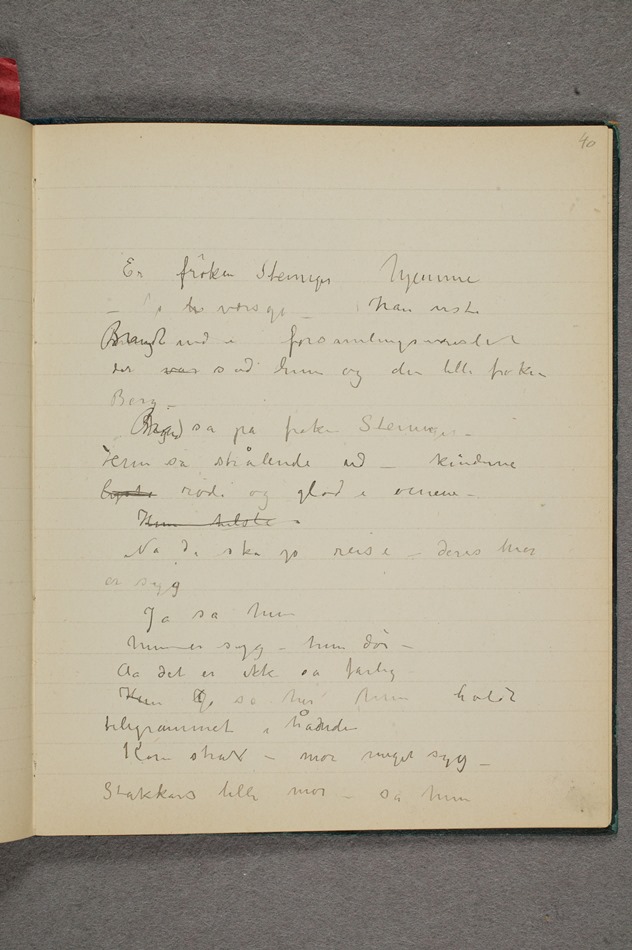 40
Er fröken Steiniger hjemme
– værsgo – han viste
Brandt ind i forsamlingsværelset
der var sad hun og den lille frøken
Berg –
Brandt sa på frøken Steiniger –
Hun så strålende ud – kinderne
lyste røde og glød i øinene –
Hun hilste –
Na De ska jo reise – deres mor
er syg
Ja sa hun
hun er syg – hun dör –
Aa det er ikke så farlig
Hun Jo sa hun hun holdt
telegrammet i hånden
Kom strax – mor meget syg –
Stakkars lille mor – sa hun